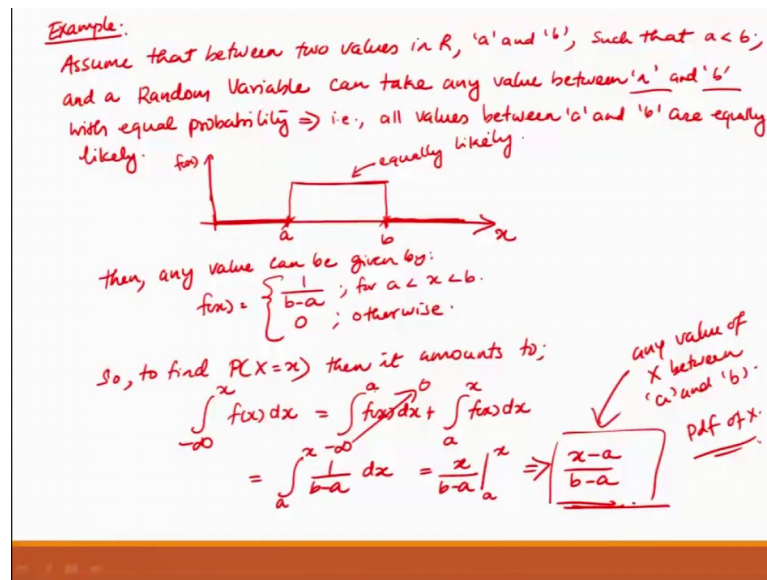 Example:
Assume that between two values in R, 'a' and 'b', such that a < b;
and a Random Variable can take any value between 'a' and 'b'
with equal probability ⇒ i.e., all values between 'a' and 'b' are equally
likely.
f(x)
equally likely.
a b x
then, any value can be given by:
f(x) = { 1/(b-a) ; for a < x < b.
0 ; otherwise.
So, to find P(X = x) then it amounts to;
∫_{-∞}^{x} f(x) dx = ∫_{-∞}^{a} f(x) dx + ∫_{a}^{x} f(x) dx
0
= ∫_{a}^{x} 1/(b-a) dx = x/(b-a) |_{a}^{x} ⇒ (x-a)/(b-a)
any value of
X between
'a' and 'b'.
pdf of X.